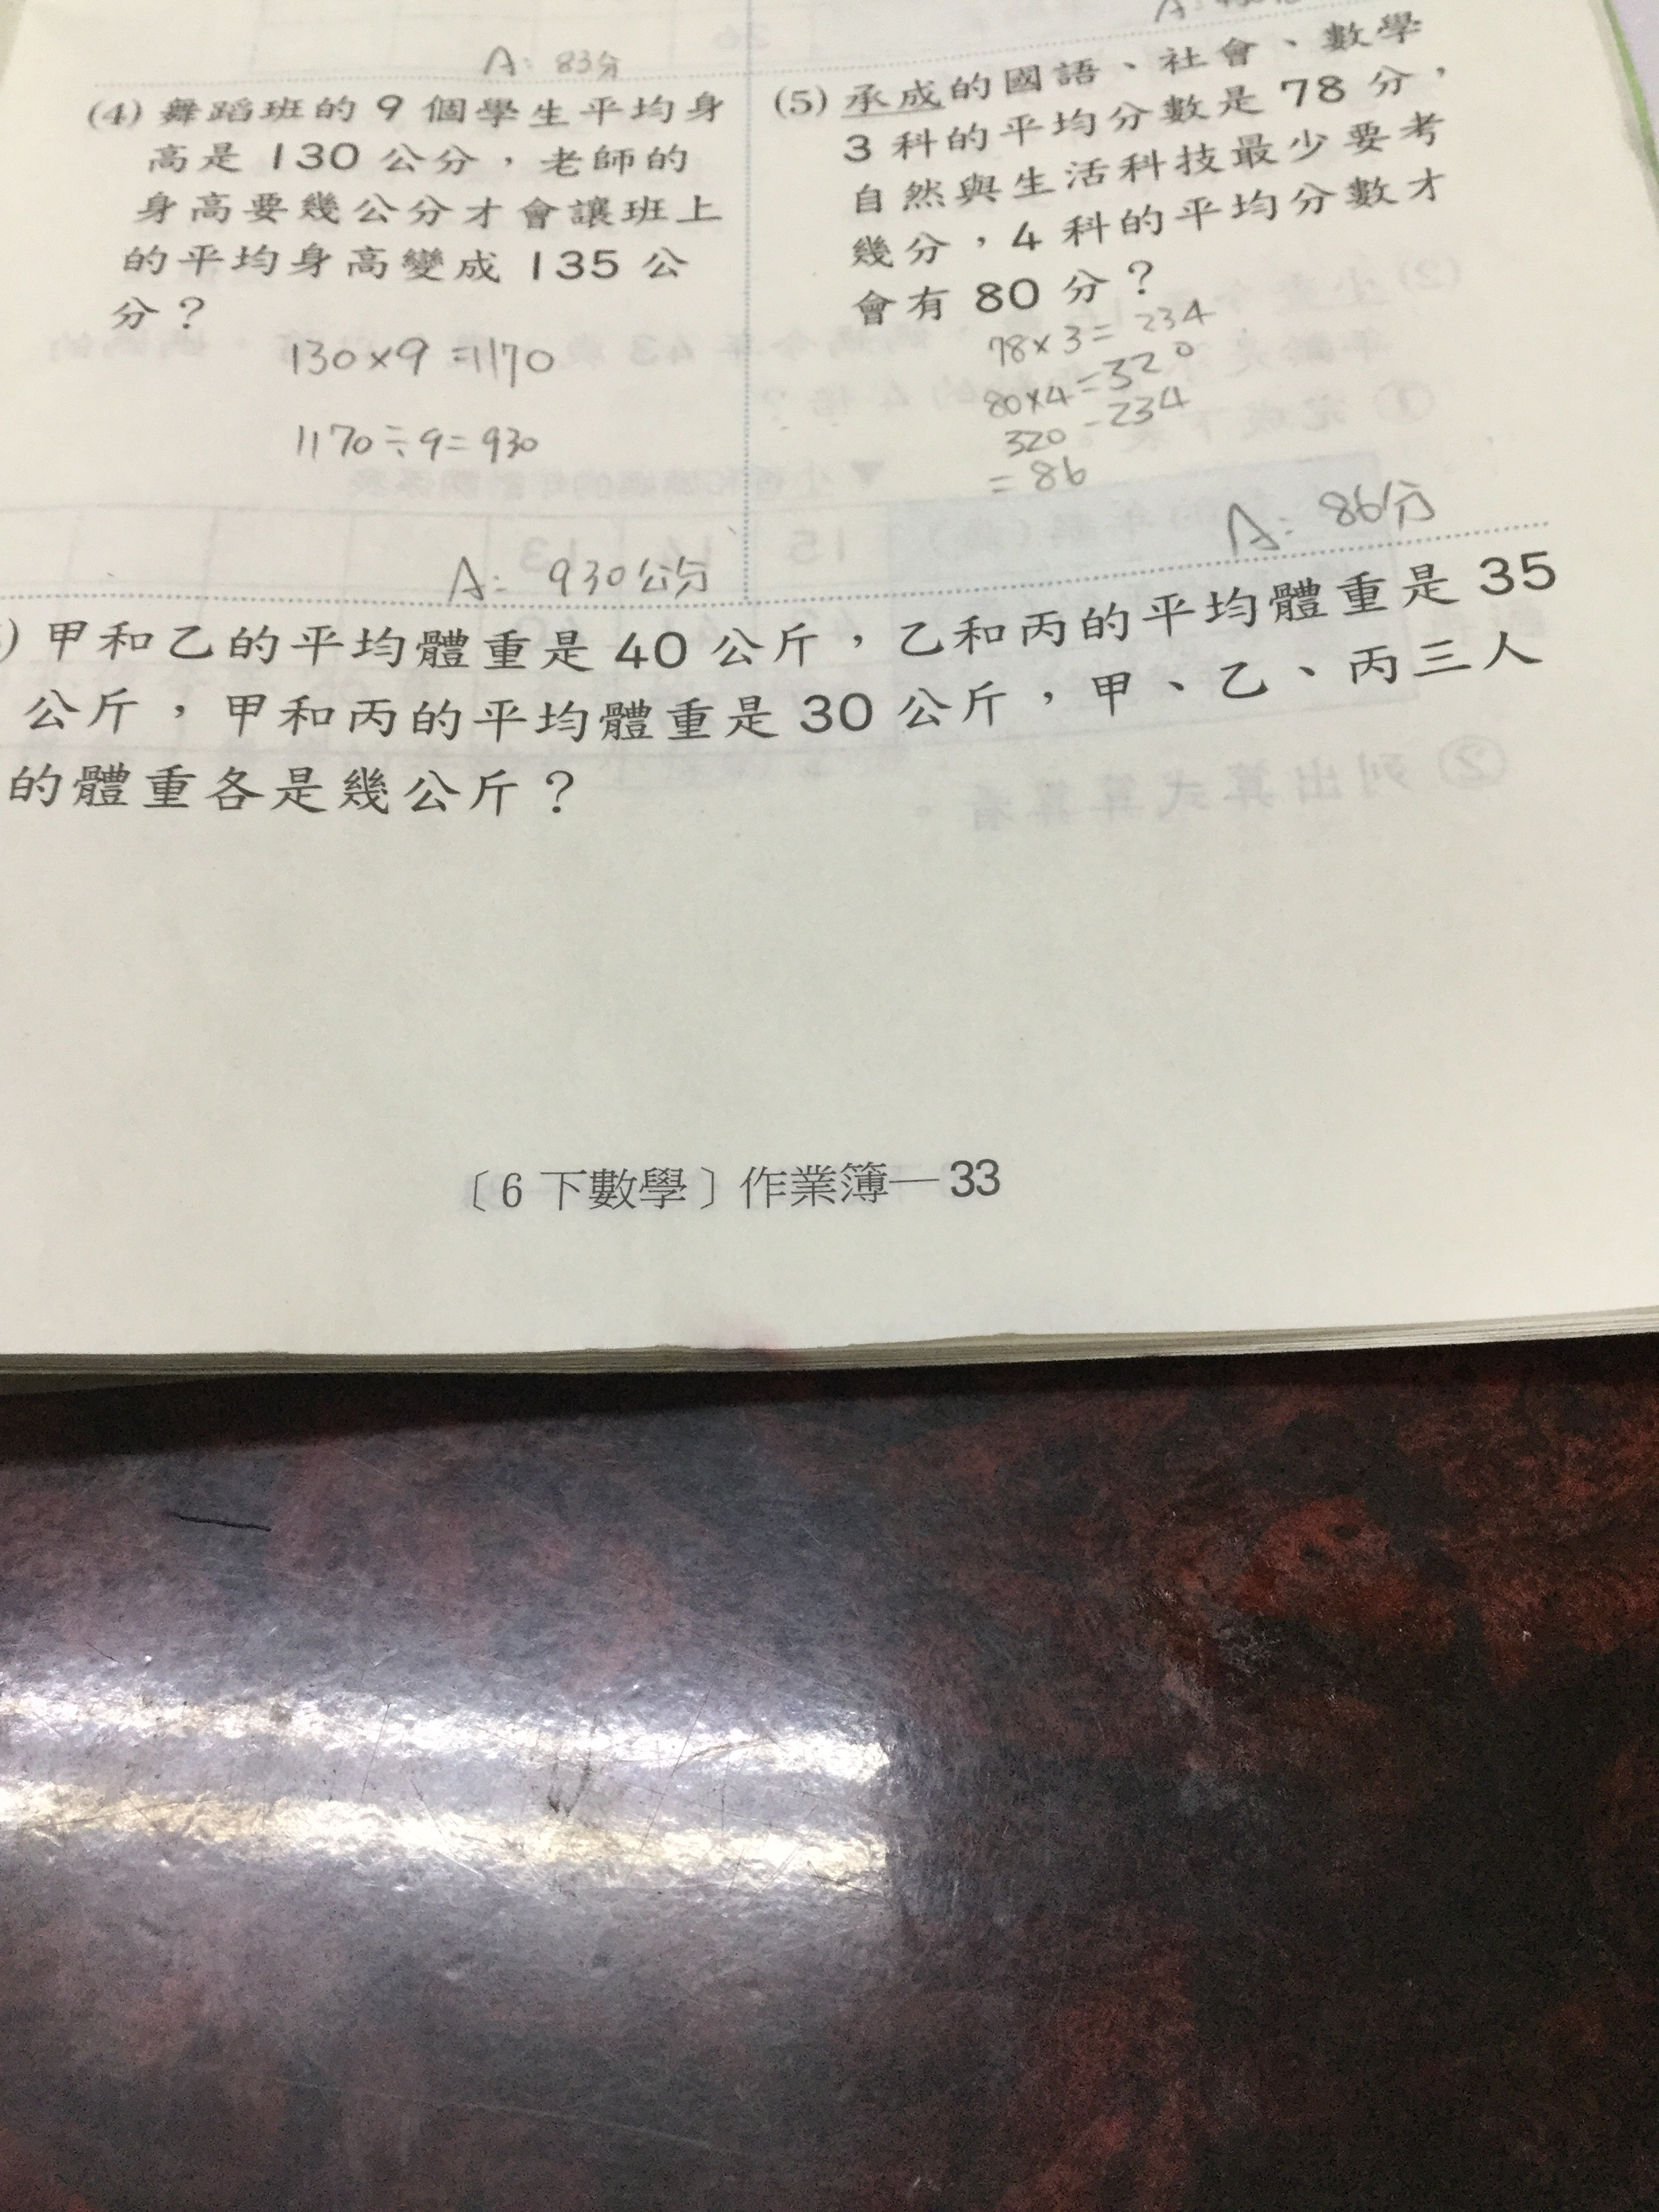 A: 83分
(4) 舞蹈班的 9 個學生平均身
高是 130 公分，老師的
身高要幾公分才會讓班上
的平均身高變成 135 公
分？
130×9=1170
1170÷9=930
A: 930公分
(5) 承成的國語、社會、數學
3 科的平均分數是 78 分，
自然與生活科技最少要考
幾分，4 科的平均分數才
會有 80 分？
78×3=234
80×4=320
320-234
=86
A: 86分
) 甲和乙的平均體重是 40 公斤，乙和丙的平均體重是 35
公斤，甲和丙的平均體重是 30 公斤，甲、乙、丙三人
的體重各是幾公斤？
〔6 下數學〕作業簿—33